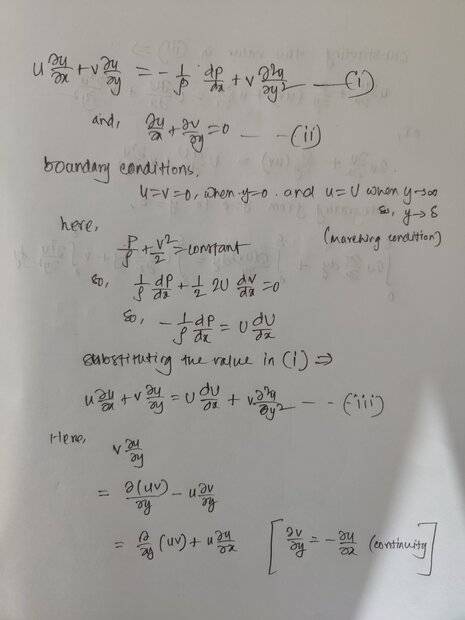 u ∂u/∂x + v ∂u/∂y = - 1/ρ dp/dx + ν ∂²u/∂y² ——— (i)
and, ∂u/∂x + ∂v/∂y = 0 — - -(ii)
boundary conditions,
u=v=0, when y=0. and u=U when y→∞
so, y→δ
(mareching condition)
here,
P/ρ + v²/2 = constant
so, 1/ρ dp/dx + 1/2 2U dv/dx = 0
so, - 1/ρ dp/dx = U dU/dx
substituting the value in (i) ⇒
u ∂u/∂x + v ∂u/∂y = U dU/dx + ν ∂²u/∂y² - - - (iii)
Here,
v ∂u/∂y
= ∂(uv)/∂y - u ∂v/∂y
= ∂/∂y (uv) + u ∂u/∂x [∂v/∂y = - ∂u/∂x (continuity)]